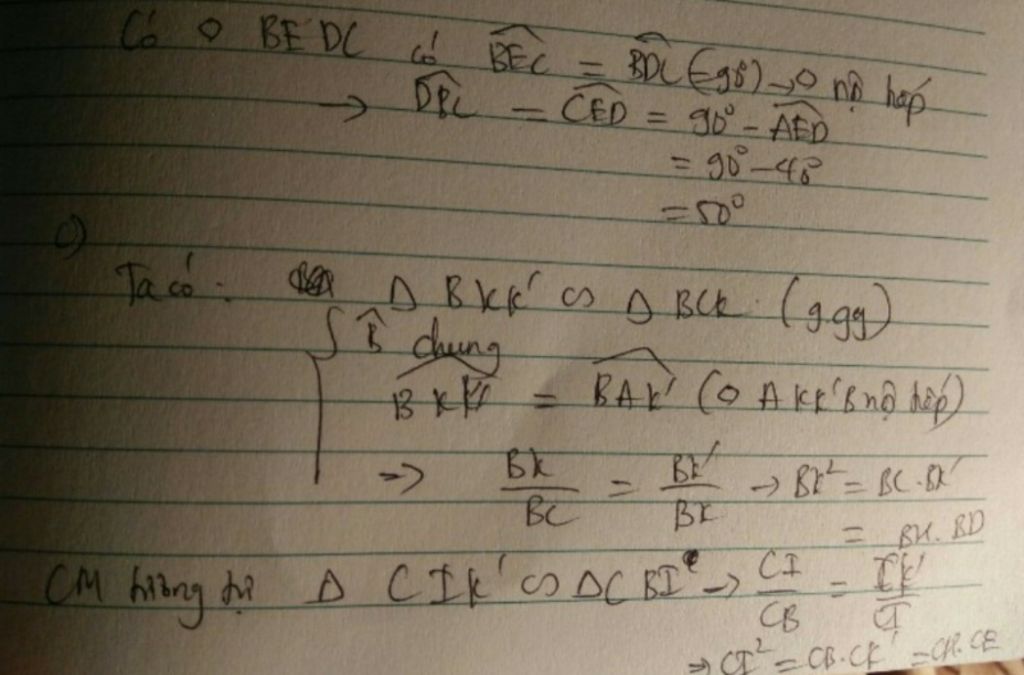 Có ◇ BEDC có \widehat{BEC} = \widehat{BDC} (=90°) → ◇ nội tiếp
→ \widehat{DBC} = \widehat{CED} = 90° - \widehat{AED}
= 90° - 40°
= 50°
c)
Ta có: Δ BKK' ∽ Δ BCK (g.gg)
{ \widehat{B} chung
\widehat{BKK'} = \widehat{BAK'} (◇ AKK'B nội tiếp)
=> \frac{BK}{BC} = \frac{BK'}{BK} → BK² = BC.BK'
= BH.BD
CM tương tự Δ CIK' ∽ ΔCBI → \frac{CI}{CB} = \frac{IK'}{CI}
=> CI² = CB.CK' = CH.CE